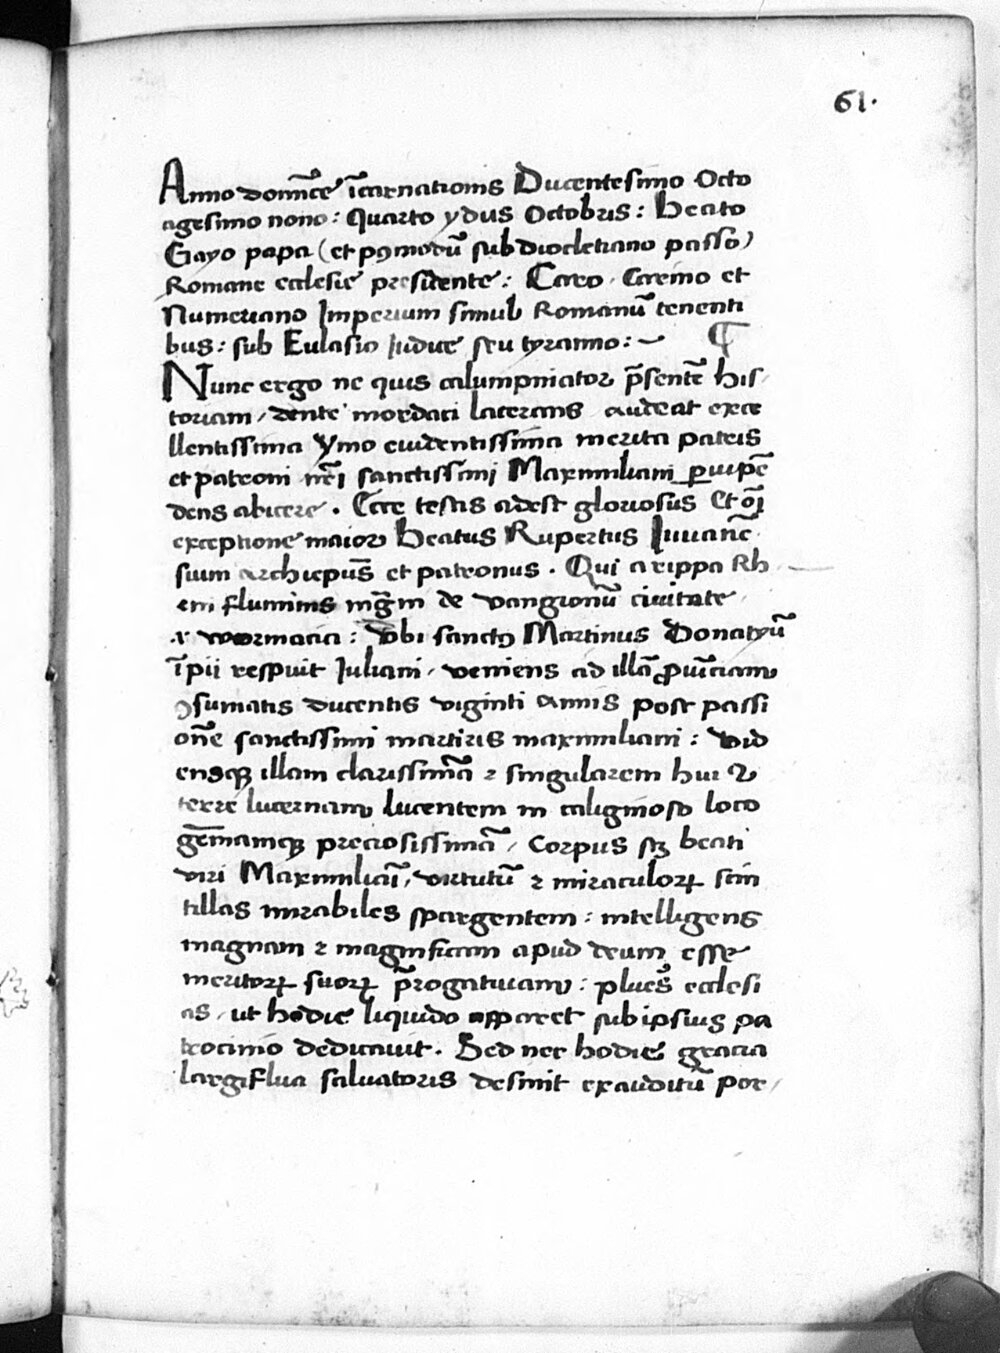 61.
Anno dom̄ice īcarnationis Ducentesimo Octo
agesimo nono: quarto ydus Octobris: Beato
Gayo papa (et pꝯmodū sub diocletiano passo)
Romane ecclesie presidente: Caro, Carino et
Numeriano Imperium simul Romanū tenenti
bus: sub Eulasio Iudice seu tyranno: ~ ¶
Nunc ergo ne quis calumpniator p̄sentē his-
toriam, dente mordaci lacerans audeat exce
llentissima Ymo euidentissima merita patris
et patroni nr̄i sanctissimi Maximiliani ꝑuipē
dens abicere. Ecce testis adest gloriosus Et oī
exceptione maior Beatus Rupertus Iuuanē-
sium archiepus̄ et patronus. Qui a rippa Rh
eni fluminis mḡm de vangionū ciuitate,
.i. wormacia: vbi sanctꝯ Martinus Donatyū
īpii respuit Iuliani, veniens ad illā ꝓuīciam
ꝯsumatis ducentis viginti annis post passi
onē sanctissimi martiris maximiliani: vid
ensqꝫ illam clarissimā ⁊ singularem huiꝰ
terre lucernam lucentem in caliginoso loco
gēmamqꝫ preciosissimā, Corpus sꝫ beati
viri Maximiliāi, virtutū ⁊ miraculorꝝ scin
tillas mirabiles spargentem: intelligens
magnam ⁊ magnificam apud deum esse
meritorꝝ suorꝝ p̄rogatiuam: plures̄ ecclesi
as, ut hodie liquido apparet sub ipsius pa
trocinio dedicauit. Sed nec hodie gracia
largiflua saluatoris desinit exauditū por-